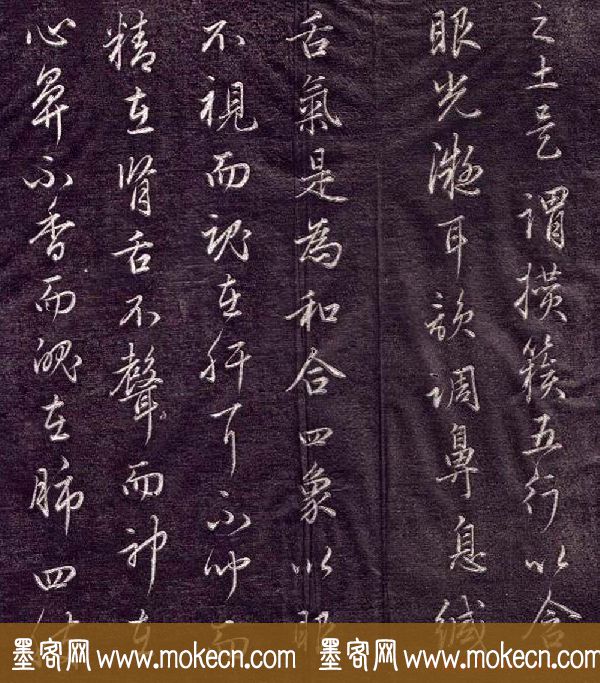 之土是謂攅簇五行以含
眼光凝耳韻調鼻息緘
舌氣是為和合四象以眼
不視而魂在肝耳不聞而
精在腎舌不聲而神在
心鼻不香而魄在肺四
墨客网 www.mokecn.com 墨客网 www.mokecn.com